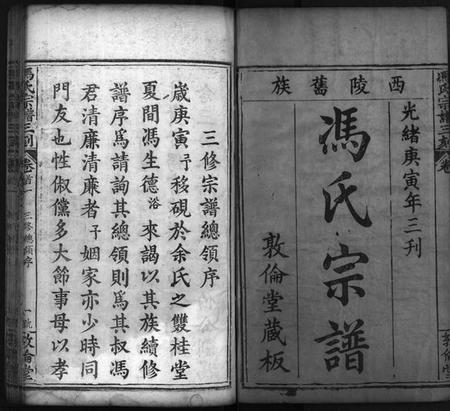 西陵舊族
光緒庚寅年三刊
馮氏宗譜
敦倫堂藏板
三修宗譜總領序
歲庚寅予移硯於余氏之雙桂堂
夏間馮生德浴來謁以其族續修
譜序為請詢其總領則為其叔馮
君清廉清廉者子姻家亦少時同
門友也性俶儻多大節事母以孝
馮氏宗譜三刊
卷首
三修總領序
一號
敦倫堂